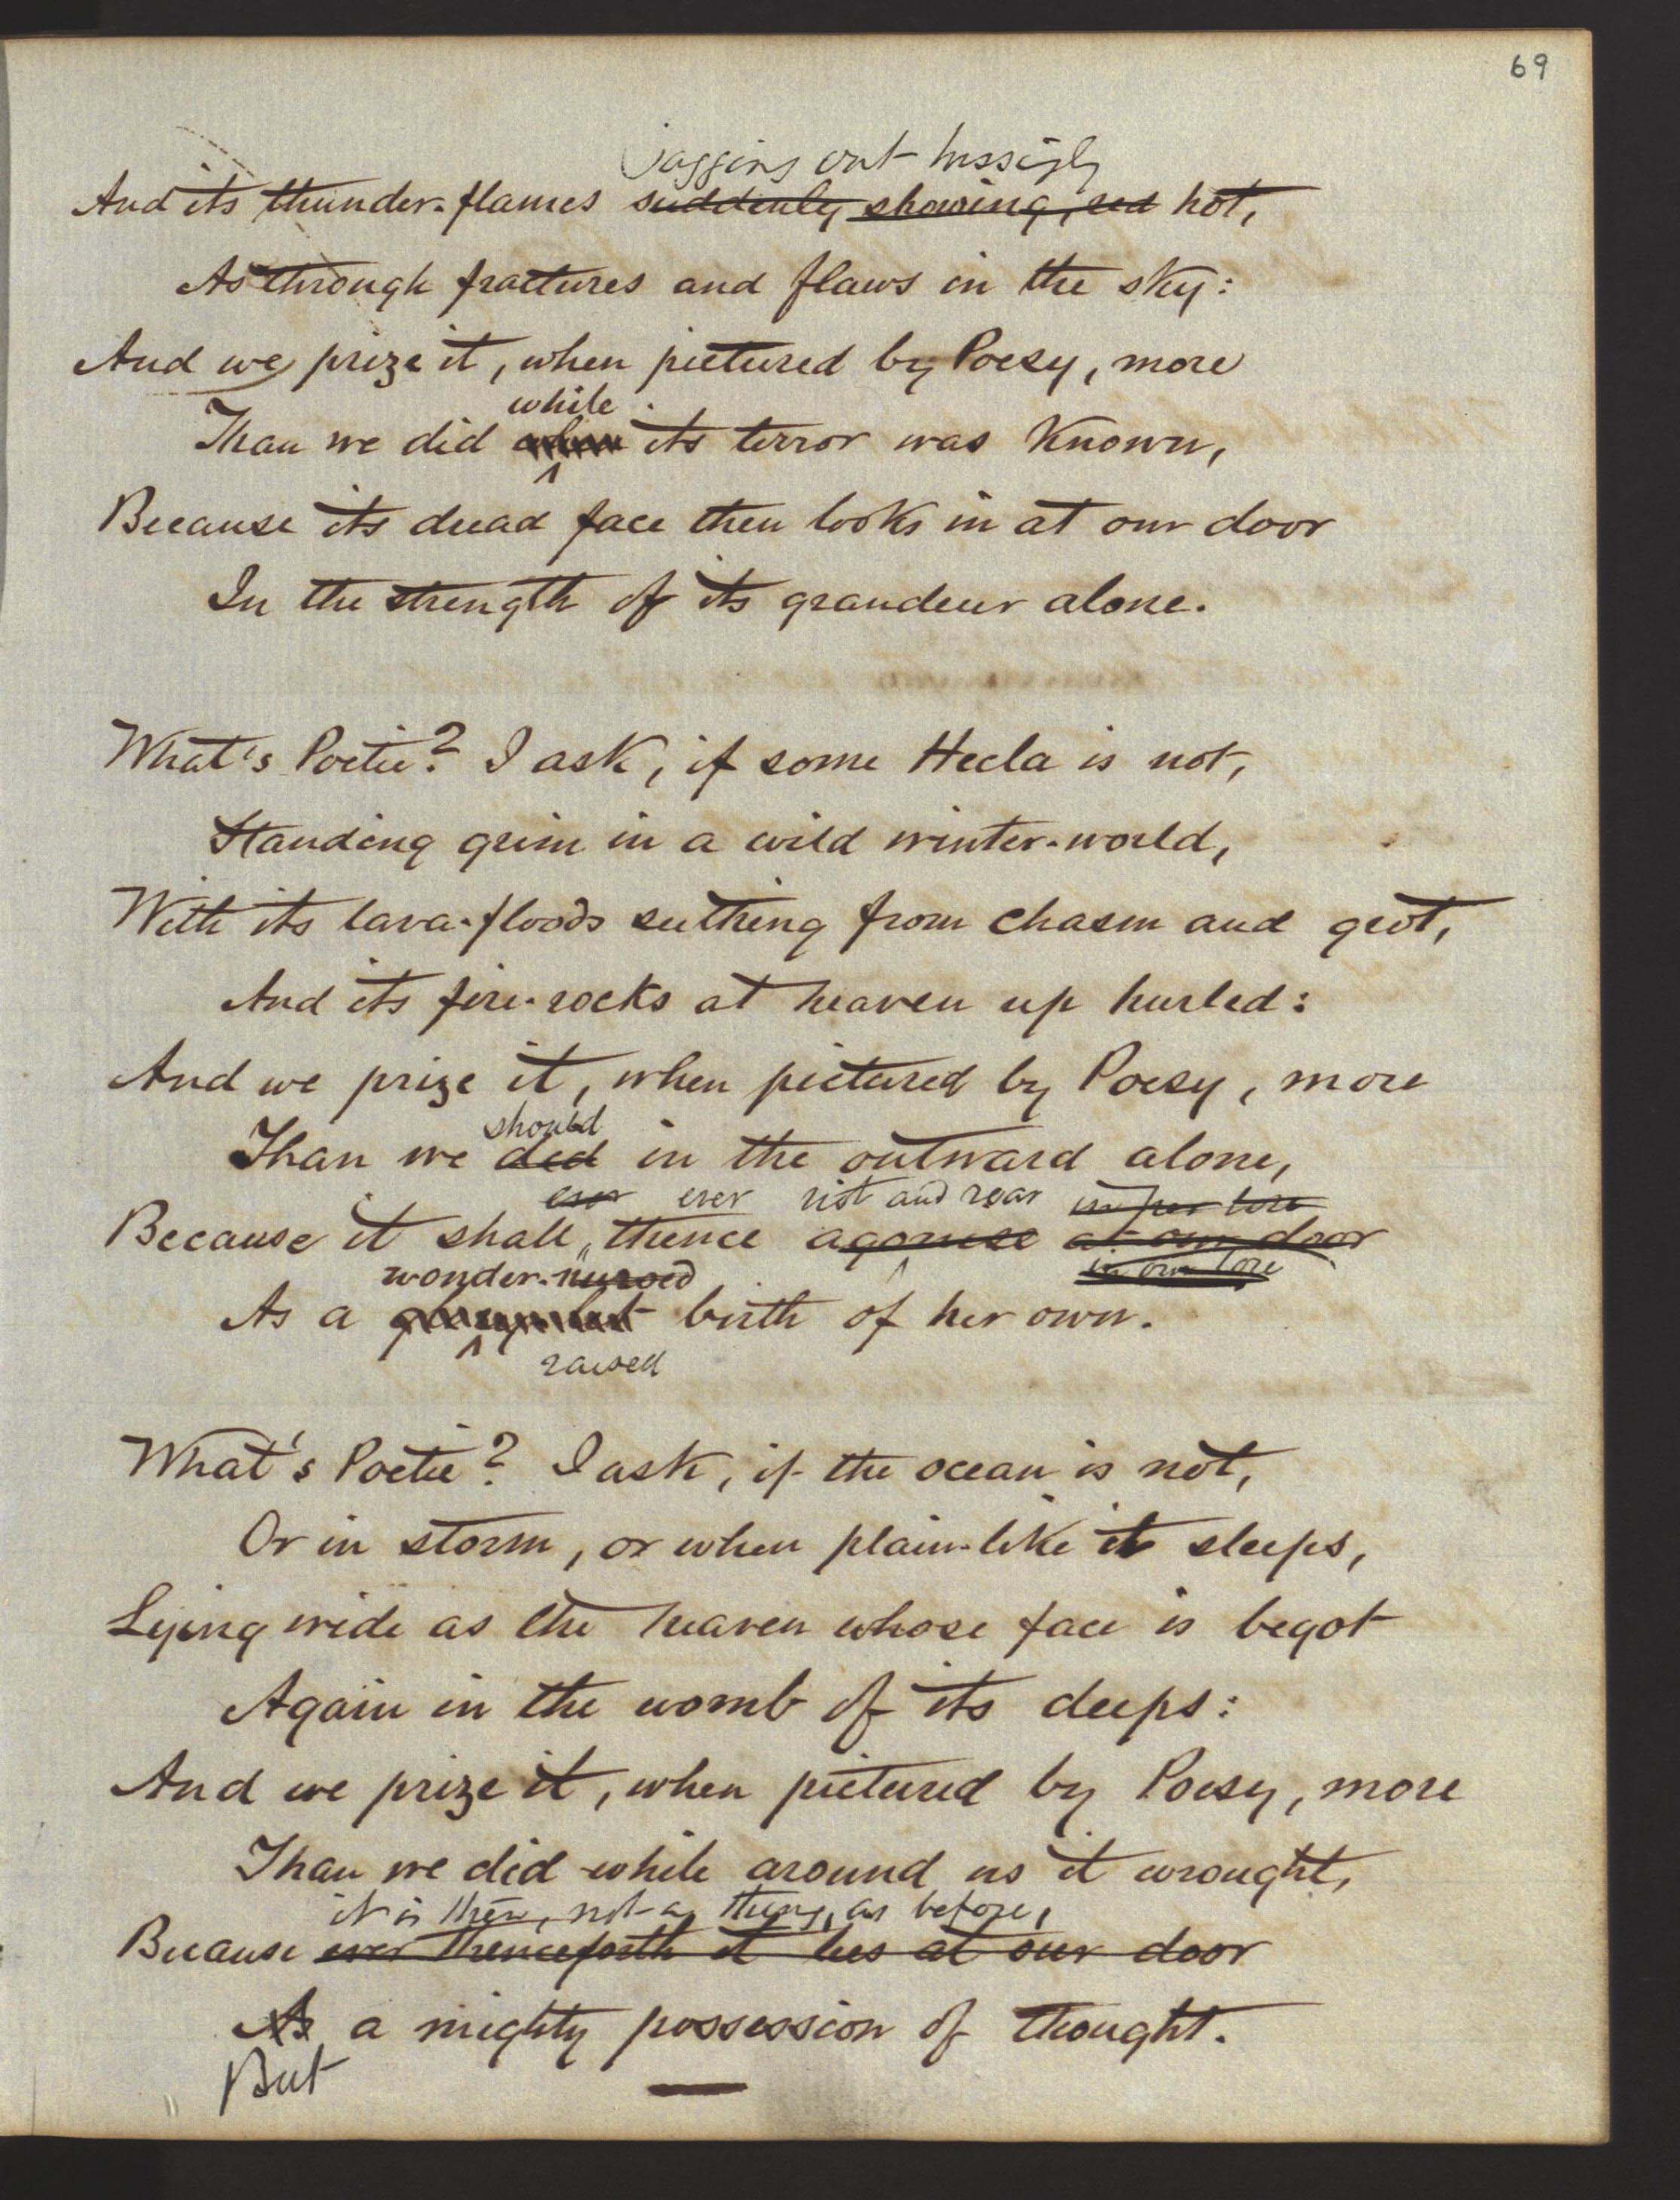 69
jagging out hissingly
And its thunder-flames suddenly showing, red hot,
As through fractures and flaws in the sky:
And we prize it, when pictured by Poesy, more
while
Than we did when its terror was known,
Because its dread face then looks in at our door
In the strength of its grandeur alone.
What's Poetic? I ask, if some Hecla is not,
Standing grim in a wild winter-world,
With its lava-floods seething from chasm and grot,
And its fire-rocks at heaven up hurled:
And we prize it, when pictured by Poesy, more
should
Than we did in the outward alone,
ever ever riot and roar in her lore
Because it shall thence agonise at our door
in our lore
wonder-nursed
As a birth of her own.
raised
What's Poetic? I ask, if the ocean is not,
Or in storm, or when plain-like it sleeps,
Lying wide as the heaven whose face is begot
Again in the womb of its deeps:
And we prize it, when pictured by Poesy, more
Than we did while around us it wrought,
it is then, not a thing, as before,
Because ever thenceforth it lies at our door
As a mighty possession of thought.
But